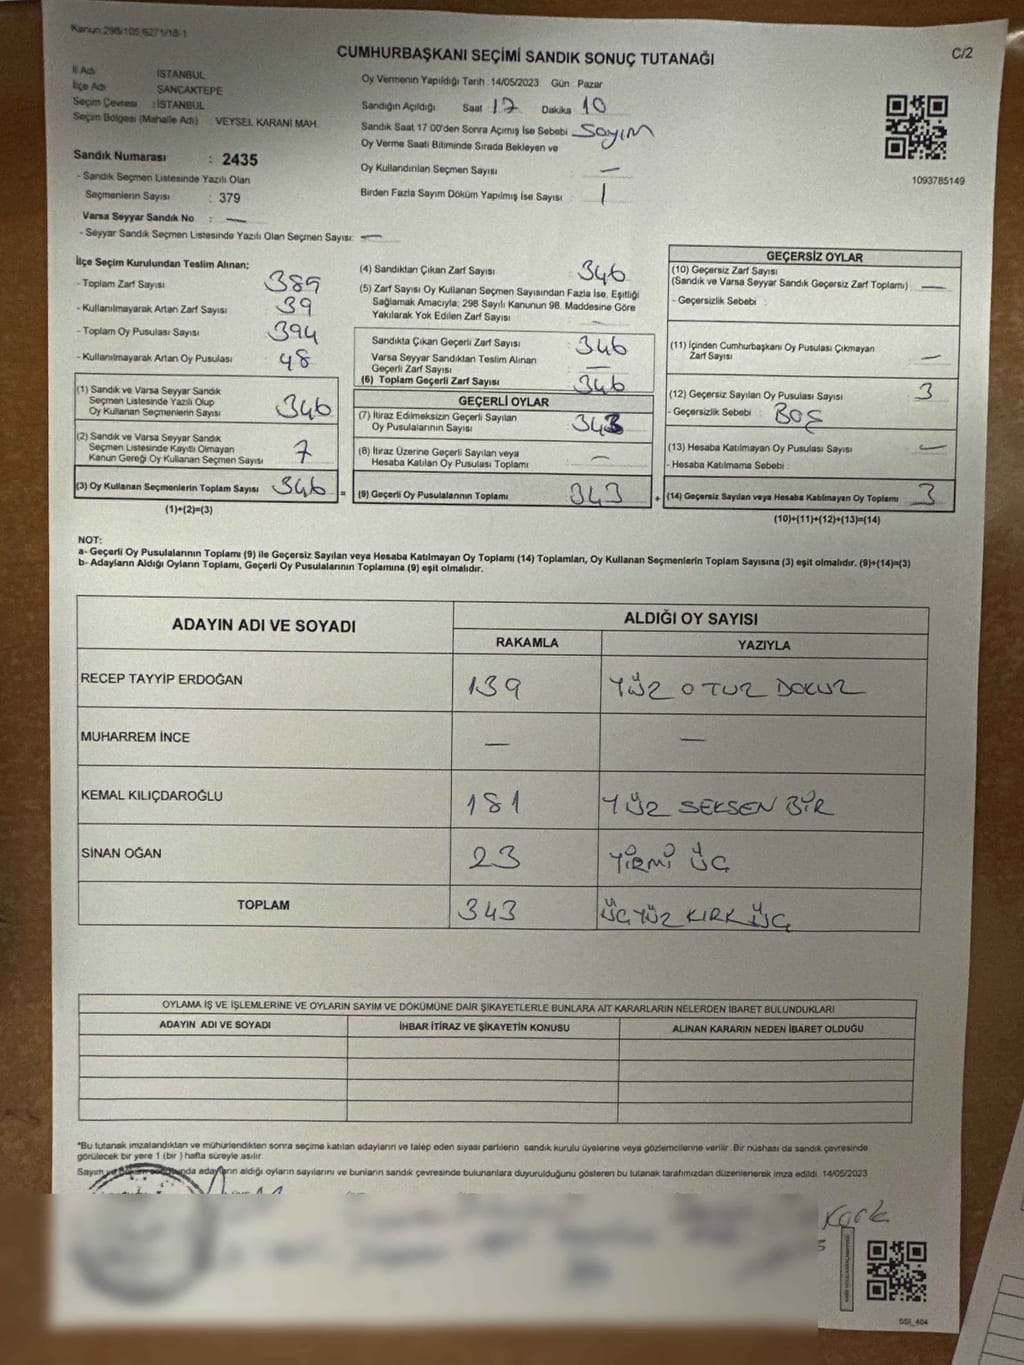 Kanun:298/105,6271/18-1
C/2
CUMHURBAŞKANI SEÇİMİ SANDIK SONUÇ TUTANAĞI
İl Adı : İSTANBUL
İlçe Adı : SANCAKTEPE
Seçim Çevresi : İSTANBUL
Seçim Bölgesi (Mahalle Adı) VEYSEL KARANİ MAH.
Sandık Numarası : 2435
- Sandık Seçmen Listesinde Yazılı Olan
Seçmenlerin Sayısı : 379
Varsa Seyyar Sandık No : —
- Seyyar Sandık Seçmen Listesinde Yazılı Olan Seçmen Sayısı: —
Oy Vermenin Yapıldığı Tarih :14/05/2023 Gün : Pazar
Sandığın Açıldığı Saat : 17 Dakika : 10
Sandık Saat 17:00'den Sonra Açımış İse Sebebi : SAYIM
Oy Verme Saati Bitiminde Sırada Bekleyen ve
Oy Kullandırılan Seçmen Sayısı : —
Birden Fazla Sayım Döküm Yapılmış İse Sayısı : 1
1093785149
İlçe Seçim Kurulundan Teslim Alınan;
- Toplam Zarf Sayısı : 389
- Kullanılmayarak Artan Zarf Sayısı : 39
- Toplam Oy Pusulası Sayısı : 394
- Kullanılmayarak Artan Oy Pusulası : 48
(1) Sandık ve Varsa Seyyar Sandık
Seçmen Listesinde Yazılı Olup
Oy Kullanan Seçmenlerin Sayısı : 346
(2) Sandık ve Varsa Seyyar Sandık
Seçmen Listesinde Kayıtlı Olmayan
Kanun Gereği Oy Kullanan Seçmen Sayısı : 7
(3) Oy Kullanan Seçmenlerin Toplam Sayısı : 346
(1)+(2)=(3)
=
(4) Sandıktan Çıkan Zarf Sayısı : 346
(5) Zarf Sayısı Oy Kullanan Seçmen Sayısından Fazla İse, Eşitliği
Sağlamak Amacıyla; 298 Sayılı Kanunun 98. Maddesine Göre
Yakılarak Yok Edilen Zarf Sayısı : —
Sandıkta Çıkan Geçerli Zarf Sayısı : 346
Varsa Seyyar Sandıktan Teslim Alınan
Geçerli Zarf Sayısı : —
(6) Toplam Geçerli Zarf Sayısı : 346
GEÇERLİ OYLAR
(7) İtiraz Edilmeksizin Geçerli Sayılan
Oy Pusulalarının Sayısı : 343
(8) İtiraz Üzerine Geçerli Sayılan veya
Hesaba Katılan Oy Pusulası Toplamı : —
(9) Geçerli Oy Pusulalarının Toplamı : 343
+
GEÇERSİZ OYLAR
(10) Geçersiz Zarf Sayısı
(Sandık ve Varsa Seyyar Sandık Geçersiz Zarf Toplamı) : —
- Geçersizlik Sebebi :
(11) İçinden Cumhurbaşkanı Oy Pusulası Çıkmayan
Zarf Sayısı : —
(12) Geçersiz Sayılan Oy Pusulası Sayısı : 3
- Geçersizlik Sebebi : BOŞ
(13) Hesaba Katılmayan Oy Pusulası Sayısı : —
- Hesaba Katılmama Sebebi :
(14) Geçersiz Sayılan veya Hesaba Katılmayan Oy Toplamı : 3
(10)+(11)+(12)+(13)=(14)
NOT:
a- Geçerli Oy Pusulalarının Toplamı (9) ile Geçersiz Sayılan veya Hesaba Katılmayan Oy Toplamı (14) Toplamları, Oy Kullanan Seçmenlerin Toplam Sayısına (3) eşit olmalıdır. (9)+(14)=(3)
b- Adayların Aldığı Oyların Toplamı, Geçerli Oy Pusulalarının Toplamına (9) eşit olmalıdır.
ADAYIN ADI VE SOYADI
ALDIĞI OY SAYISI
RAKAMLA YAZIYLA
RECEP TAYYİP ERDOĞAN 139 YÜZ OTUZ DOKUZ
MUHARREM İNCE — —
KEMAL KILIÇDAROĞLU 181 YÜZ SEKSEN BİR
SİNAN OĞAN 23 YİRMİ ÜÇ
TOPLAM 343 ÜÇYÜZ KIRK ÜÇ
OYLAMA İŞ VE İŞLEMLERİNE VE OYLARIN SAYIM VE DÖKÜMÜNE DAİR ŞİKAYETLERLE BUNLARA AİT KARARLARIN NELERDEN İBARET BULUNDUKLARI
ADAYIN ADI VE SOYADI İHBAR İTİRAZ VE ŞİKAYETİN KONUSU ALINAN KARARIN NEDEN İBARET OLDUĞU
*Bu tutanak imzalandıktan ve mühürlendikten sonra seçime katılan adayların ve talep eden siyasi partilerin sandık kurulu üyelerine veya gözlemcilerine verilir. Bir nüshası da sandık çevresinde
görülecek bir yere 1 (bir) hafta süreyle asılır.
Sayım ve adayların aldığı oyların sayılarını ve bunların sandık çevresinde bulunanlara duyurulduğunu gösteren bu tutanak tarafımızdan düzenlenerek imza edildi. 14/05/2023
SSİ_404